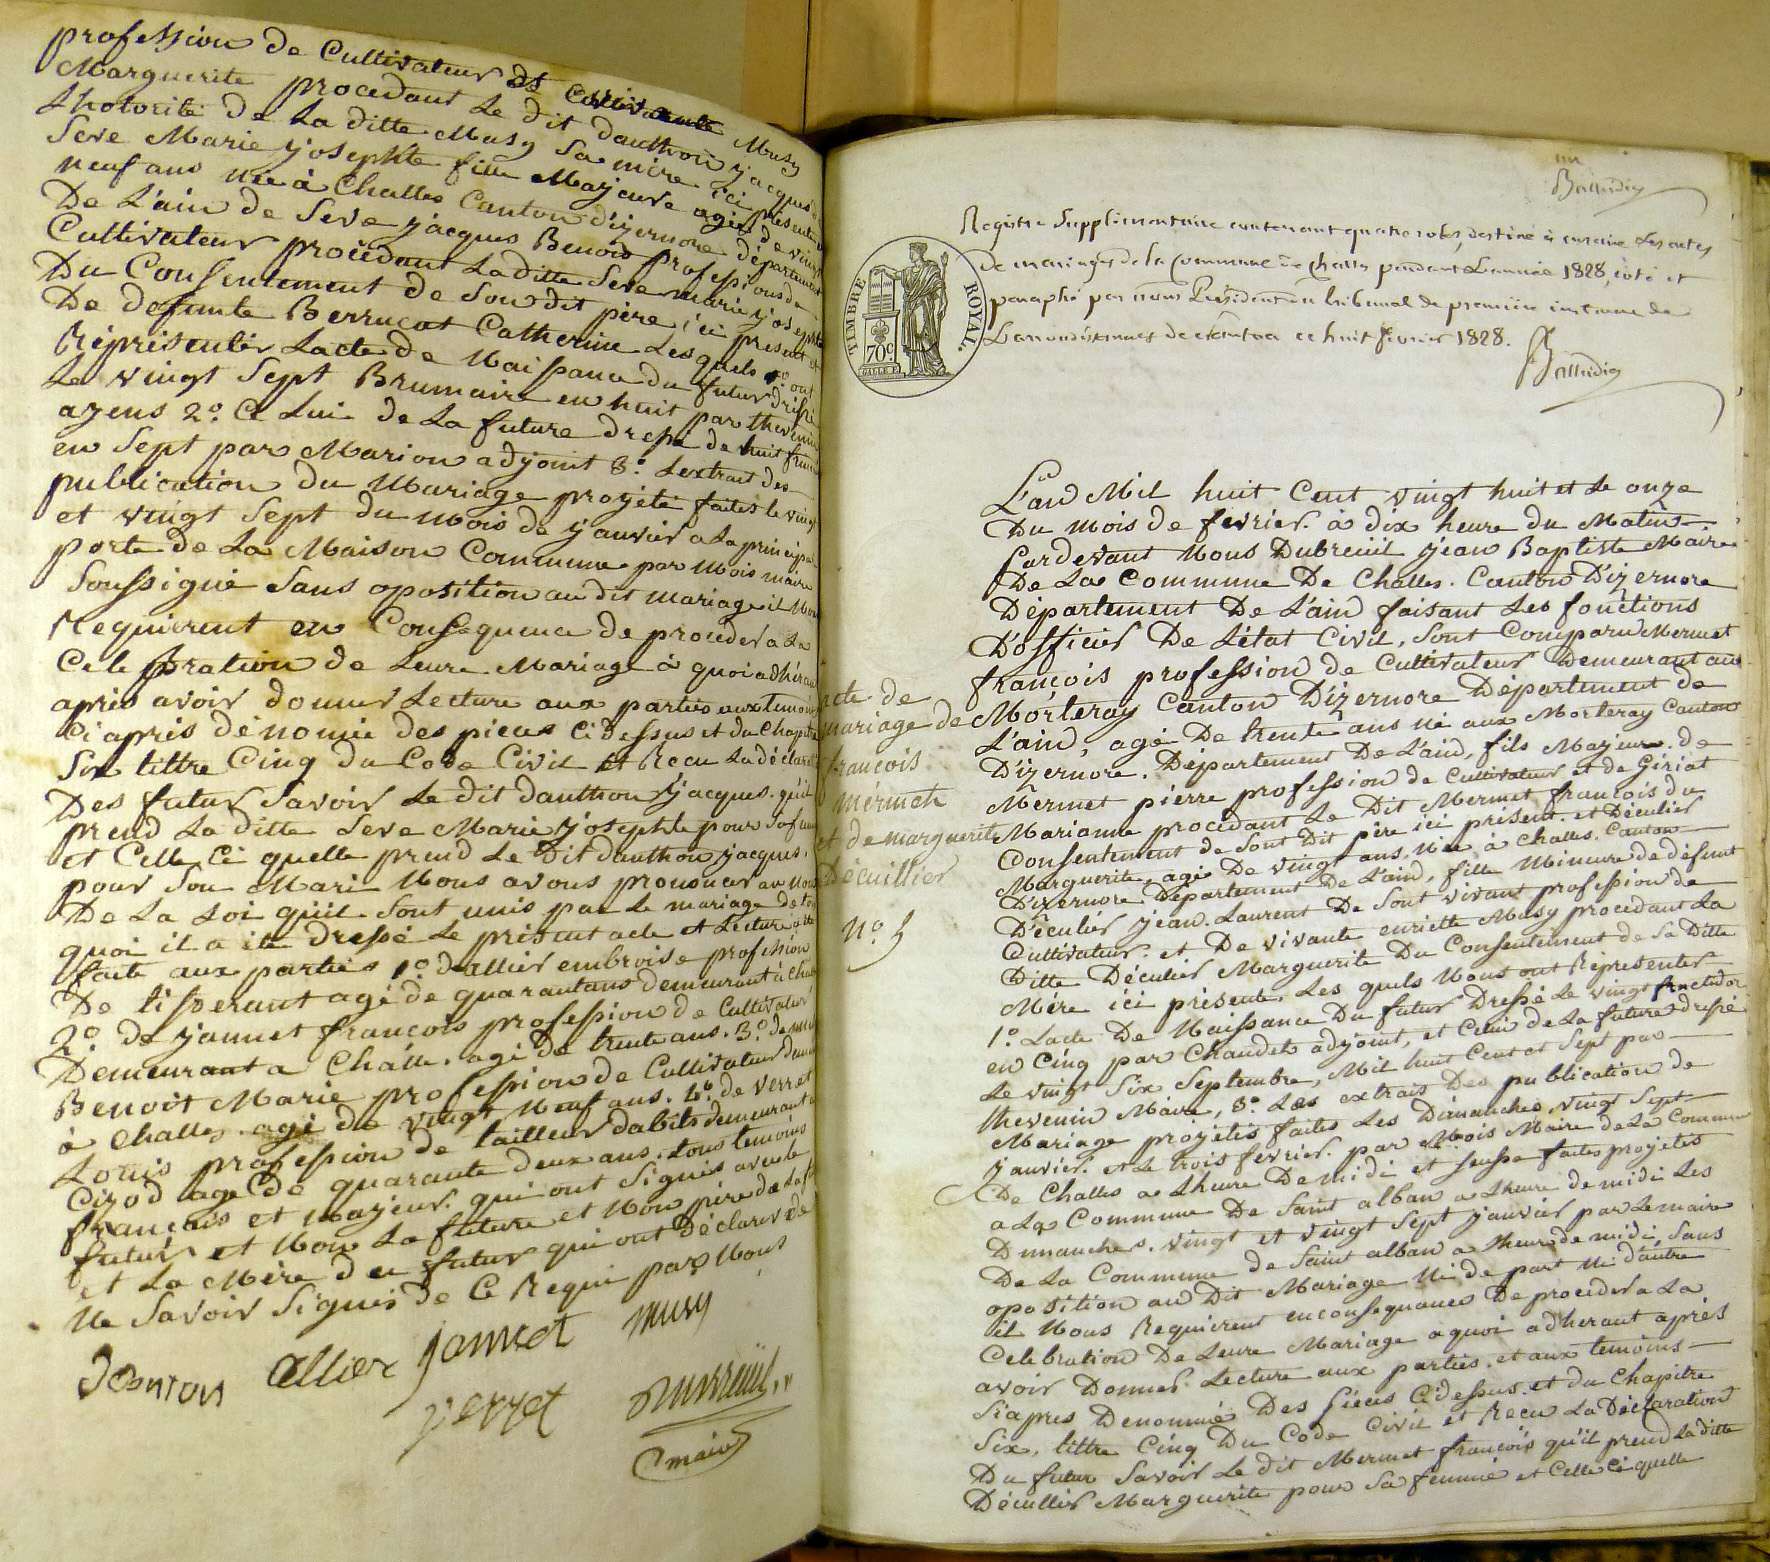 profession de Cultivateur et Cultivante Musy
Marguerite procedant Le dit dauthon yjacques d
Lhotorité de La ditte Musy Sa mère ici présente et
Seve Marie yjosephte fille Majeure agée de vingt
neuf ans née à Challes Canton d'izernore département
De L'ain de Seve yjacques Benoid profession de
Cultivateur procédant La ditte Seve marie yjosephte
Du Consentement de Son dit père ici présent et
De defunte Berrucat Catherine Les quels 1º ont
Réprésenter Lacte de Naissance du futur dressé
Le vingt Sept Brumaire en huit par thevenin
agens 2º Ce Lui de La future dressé de huit frim
en Sept par Marion adjoint 3º Lextrait des
publication du Mariage projété faites le vingt
et vingt Sept du mois de yjanvier a La principal
porte de La Maison Commune par Mois maire
Soussigné Sans oposition au dit mariage il Nou
Requierent en Consequence de proceder a La
Celebration de Leure Mariage à quoi adhéran
après avoir donner Lecture aux parties aux temoin
Ci après dénomée des pieces Ci dessus et du Chapitre
Six tittre Cinq du Code Civil et Recu La déclarat
Des futur Savoir Le dit dauthon yjacques qu'il
prend La ditte Seve Marie yjosephte pour Sa femme
et Celle Ci quelle prend Le Dit dauthon yjacques
pour Son Mari Nous avons prononcer au Nom
De La Loi qu'il Sont unis par Le mariage De tou
quoi il a été Dressé Le présent acte et Lecture a été
faite aux parties 1º Dallier embroise profession
De tisserant agé de quarantans demeurant à Challe
2º de yjannet françois profession de Cultivateur
Demeurant a Challe. agé de trente ans. 3º de
Benoit Marie profession de Cultivateur dem
à Challes agé de vingt Neuf ans. 4º de verret
Louis profession de tailleur dabits demeurant a
Cizod agé de quarante deux ans. tous temoins
français et Majeur. qui ont Signés avec le
futur et Non La future et Non père de La f
et La Mère du futur qui ont Déclarer de
Ne Savoir Signés de Ce Requi par Nous
allier jannet musy
verret Dubreuil
maire
Registre Supplémentaire contenant quatre roles, destiné à inscrire Les actes
de mariages de la Commune de Challes pendant L'année 1828, coté et
paraphé par nous Président du tribunal de première instance de
L'arrondissement de Nantua ce huit fevrier 1828.
TIMBRE ROYAL.
70 c
Lan Mil huit Cent vingt huit et Le onze
Du Mois de fevrier. à dix heure du Matin
Pardevant Nous Dubreüil yjean Baptiste Maire
De La Commune De Challes. Canton D'izernore
Département De L'ain faisant Les fonctions
D'officier De Létat Civil, Sont Comparu Mermet
françois profession de Cultivateur Demeurant au
Morteray Canton D'izernore Département de
L'ain, agé De trente ans né aux Morteray Canton
D'izernore. Département De L'ain, fils Majeur. de
Mermet pierre profession de Cultivateur et de Giriat
Marianne procédant Le Dit Mermet francois du
Consentement de Sont Dit père ici présent. et Déculier
Marguerite, agé De vingt ans. Née à Challes. Canton
D'izernore Département De L'ain, fille Mineure de défunt
Déculier yjean. Laurent De Sont vivant profession de
Cultivateur. et De vivante enriette Musy procedant La
Ditte Déculier Marguerite Du Consentement de Sa Ditte
Mère ici présente. Les quels Nous ont Réprésenter
1º Lacte De Naissance Du futur Dressé Le vingt fructidor
en Cinq par Chaudet adjoint, et Celui de La future dressé
Le vingt Six Septembre, Mil huit Cent et Sept par
thevenin Maire, 3º Les extrais Des publication de
Mariage projetés faites Les Dimanches vingt Sept
yjanvier. et Le trois fevrier. par Mois Maire de La Commune
De Challes a Lheure De midi et faites projetés
a La Commune De Saint alban a Lheure de midi Les
Dimanches. vingt et vingt Sept yjanvier par Le maire
De La Commune de Saint alban a Lheure de midi, Sans
oposition au Dit Mariage Ni de part Ni d'autre
il Nous Requierent en consequance De proceder a La
Celebration De Leure Mariage a quoi adherant après
avoir Donner Lecture aux parties. et aux temoins
Siapres Denommé Des Pièces Cidessus. et du Chapitre
Six, tittre Cinq Du Code Civil et Recu La Déclaration
Du futur Savoir Le dit Mermet françois qu'il prend La ditte
Décullier Marguerite pour Sa femme et Celle Ci quelle
acte de
mariage de
francois
mermet
et de marguerite
Décuillier
Nº 5